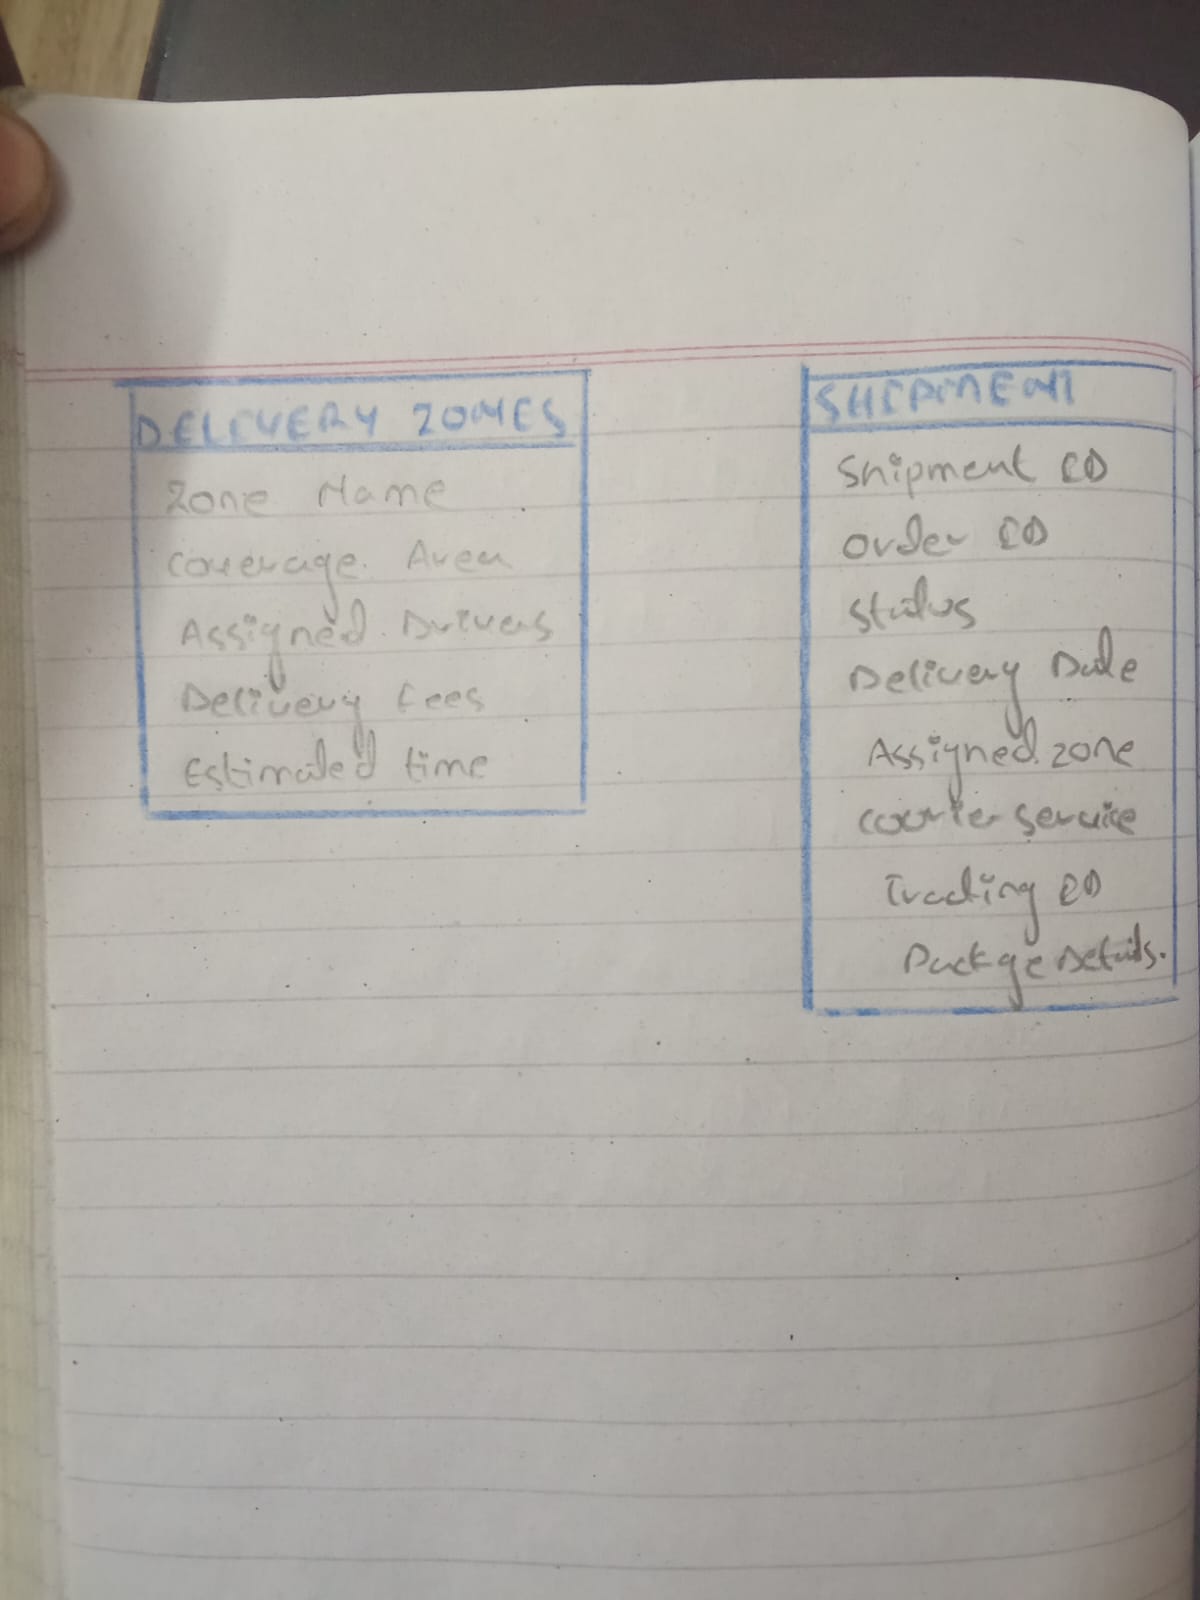 DELIVERY ZONES
Zone Name
Coverage Area
Assigned Drivers
Delivery Fees
Estimated time
SHIPMENT
Shipment ID
Order ID
Status
Delivery Date
Assigned zone
Courier service
Tracking ID
Packge Details.